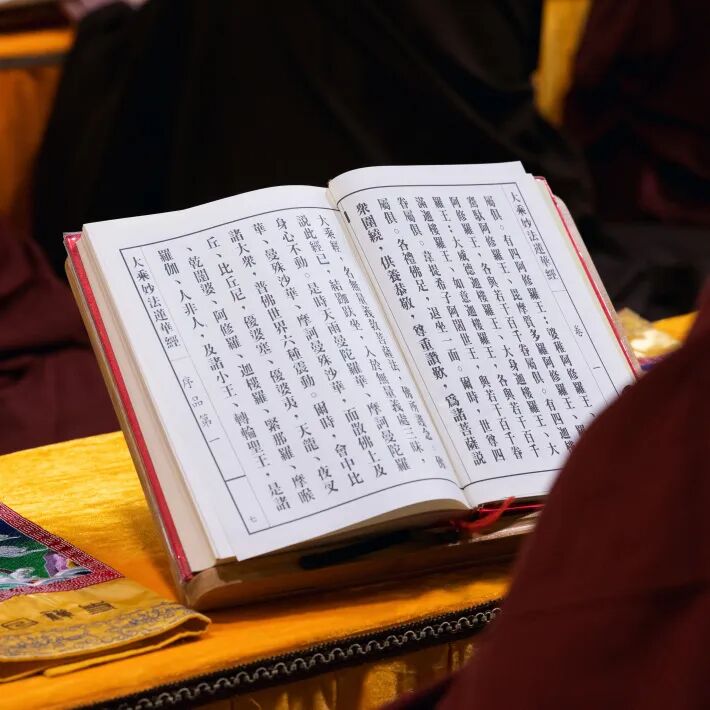 大乘妙法蓮華經 卷一
屬俱。有四阿修羅王、婆稚阿修羅王、
騫馱阿修羅王、毘摩質多羅阿修羅王、
阿修羅王,各與若干百千眷屬俱。有四迦
樓羅王:大威德迦樓羅王、大身迦樓羅王、大
滿迦樓羅王、如意迦樓羅王,各與若干百千眷
屬俱。韋提希子阿闍世王,與若干百千
眷屬俱。各禮佛足,退坐一面。爾時,世尊四
眾圍繞,供養恭敬,尊重讚歎,為諸菩薩說
大乘經,名無量義教菩薩法,佛所護念。佛
說此經已,結跏趺坐,入於無量義處三昧,
身心不動。是時天雨曼陀羅華、摩訶曼陀羅
華、曼殊沙華、摩訶曼殊沙華,而散佛上及
諸大眾,普佛世界六種震動。爾時,會中比
丘、比丘尼,優婆塞、優婆夷,天龍、夜叉
、乾闥婆、阿修羅、迦樓羅、緊那羅、摩睺
羅伽、人非人,及諸小王、轉輪聖王,是諸
大乘妙法蓮華經 序品第一 七